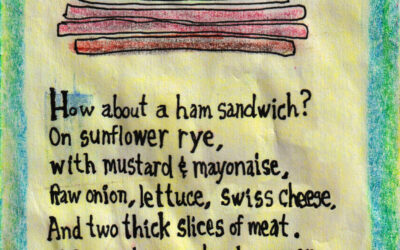 How about a ham sandwich?
On sunflower rye,
with mustard & mayonaise,
Raw onion, lettuce, swiss cheese,
And two thick slices of meat.